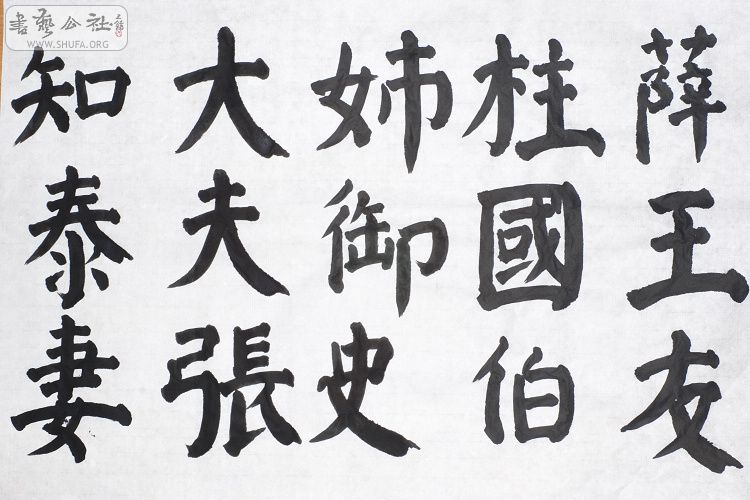 薛王友
柱國伯
姊御史
大夫張
知泰妻
書藝公社
WWW.SHUFA.ORG